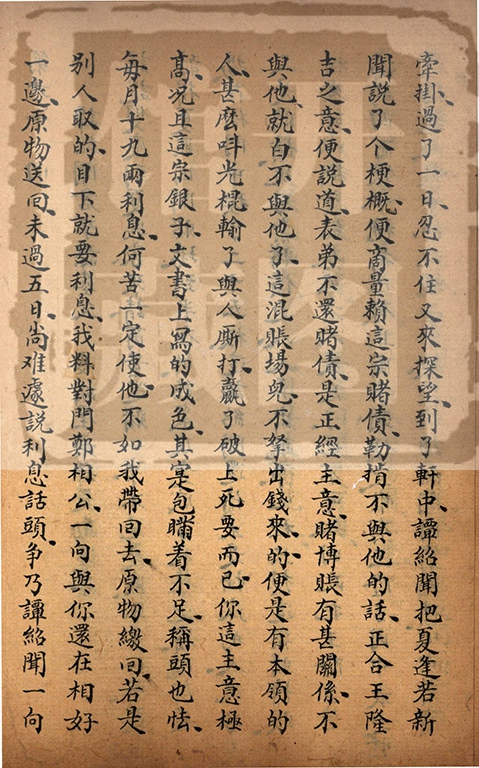 牽掛、過了一日、忍不住又來探望、到了軒中、譚紹聞把夏逢若新
聞說了个梗概、便商量賴這宗賭債、勒掯不與他的話、正合王隆
吉之意、便說道、表弟不還賭債、是正經主意、賭博賬有甚關係、不
與他、就白不與他了、這混賬場兒、不拏出錢來的、便是有本領的
人、甚麽呌光棍、輸了與人厮打、贏了破上死要而已、你這主意極
高、况且這宗銀子、文書上寫的成色、其寔包瞞着不足稱頭也怯、
每月十九兩利息、何苦一定使他、不如我帶回去、原物繳回、若是
别人取的、目下就要利息、我料對門鄭相公、一向與你還在相好
一邊、原物送回、未過五日、尚难遽説利息話頭、争乃譚紹聞一向